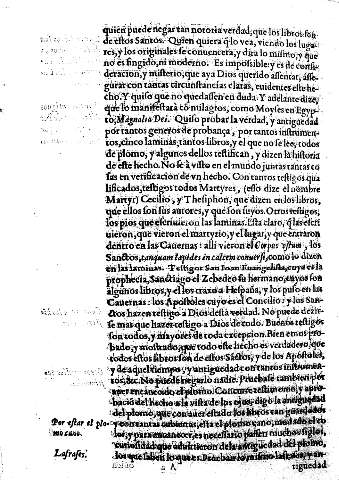 quien puede negar tan notoria verdad, que los libros son
de estos Santos. Quien quiera q̃ lo vea, viendo los luga-
res, y los originales se conuencera, y dira lo mismo, y que
no es fingido, ni moderno. Es impossible: y es de consi-
deracion, y misterio, que aya Dios querido assentar, asse-
gurar con tantas circunstancias claras, euidentes este he-
cho. Y quiso que no quedassen en duda. Y adelante dize,
que lo manifestará cõ milagros, como Moyses en Egyp-
to, Magnalia Dei. Quiso probar la verdad, y antiguedad
por tantos generos de probança, por tantos instrumen-
tos, cinco laminas, tantos libros, y el que no se lee, todos
de plomo, y algunos dellos testifican, y dizen la historia
de este hecho. No se à visto en el mundo juntas tantas co
sas en verificacion de vn hecho. Con tantos testigos qua
lificados, testigos todos Martyres, (esso dize el nombre
Martyr) Cecilio, y Thesiphon, que dizen en los libros,
que ellos son sus autores, y que son suyos. Otros testigos,
los pios que escriuieron las laminas. Esta claro, q̃ las escri
uieron, que vieron el martyrio, y el lugar, y que entraron
dentro en las Cauernas: alli vieron el Corpus vstum, los
Sanctos, tanquam lapides in calcem conuersi, como lo dizen
en las laminas. Testigo San Iuan Euangelista, cuya es la
prophecia, Sanctiago el Zebedeo su hermano, cuyos son
algunos libros, y el los traxo a Hespaña, y los puso en las
Cauernas: los Apostoles cuyo es el Concilio: y los San-
ctos hazen testigo a Dios desta verdad. No puede dezir-
se mas que hazer testigo a Dios de todo. Buenos testigos
son todos, y mayores de toda excepcion. Bien emos pro-
bado, y mostrado, que todo este hecho es verdadero, que
todos estos libros son de estos Sãctos, y de los Apostoles,
y de aquel tiempo, y antiguedad con tantos instrumen-
tos, &c. No puede negarlo nadie. Prueuase tambien por
auer encanecido el plomo. Concurre testimonio, y apro-
bacion del hecho a la vista de los ojos, digo la antiguedad
Por estar el plo- del plomo, que con auer estado los libros tan guardados
mo cano. y con tantas cubiertas, està el plomo cano, mudado el co
lor, y para encanecer, es necessario passen muchos siglos,
Las frases. los que saben lo que es. Prueban lo mismo las frases, y an-
tiguedad